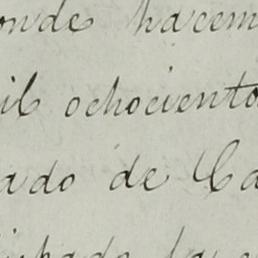 onde hacem
il ochociento
ado de Ca